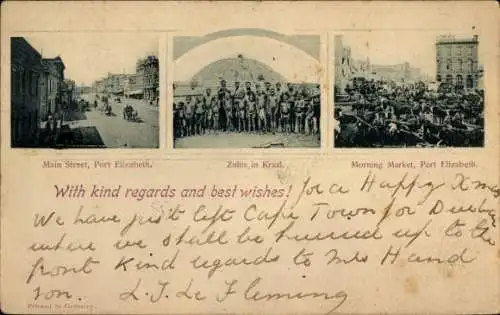 Main Street, Port Elizabeth.
Zulus in Kraal.
Morning Market, Port Elizabeth.
With kind regards and best wishes! for a Happy Xmas
We have just left Cape Town for Durban
where we shall be hurried up to the
front Kind regards to Mrs Hand
son. L. J. Le Fleming
Printed in Germany.